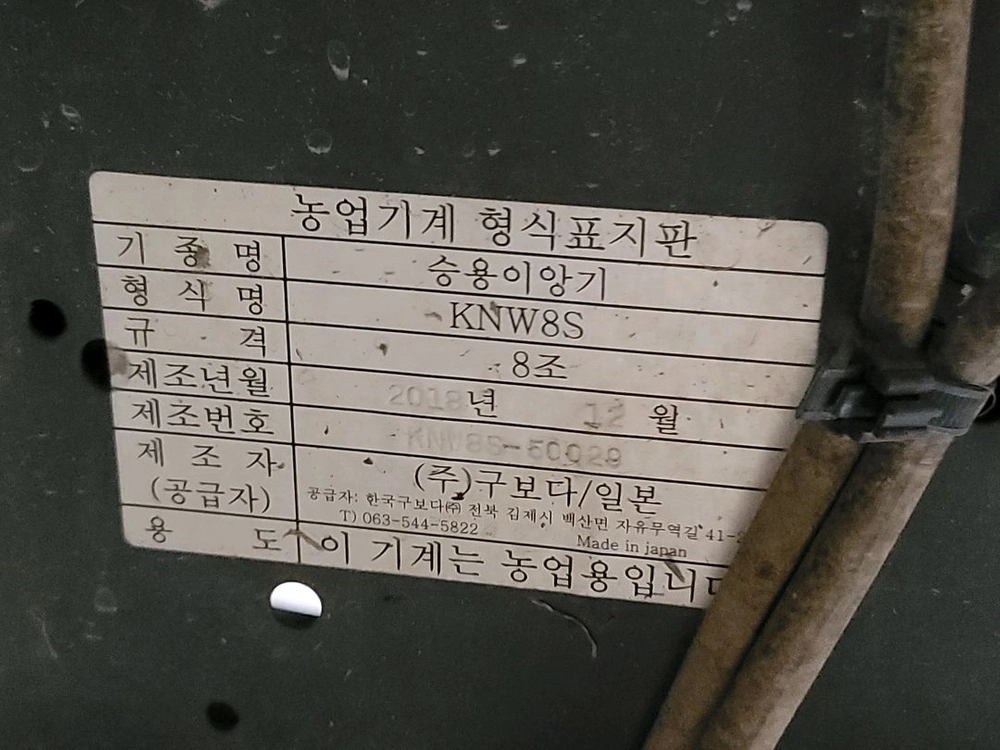 농업기계 형식표지판
기종명 승용이앙기
형식명 KNW8S
규격 8조
제조년월 2018년 12월
제조번호 KNW8S-50029
제조자 (주)구보다/일본
(공급자) 공급자: 한국구보다㈜ 전북 김제시 백산면 자유무역길 41-
T) 063-544-5822 Made in japan
용도 이 기계는 농업용입니다